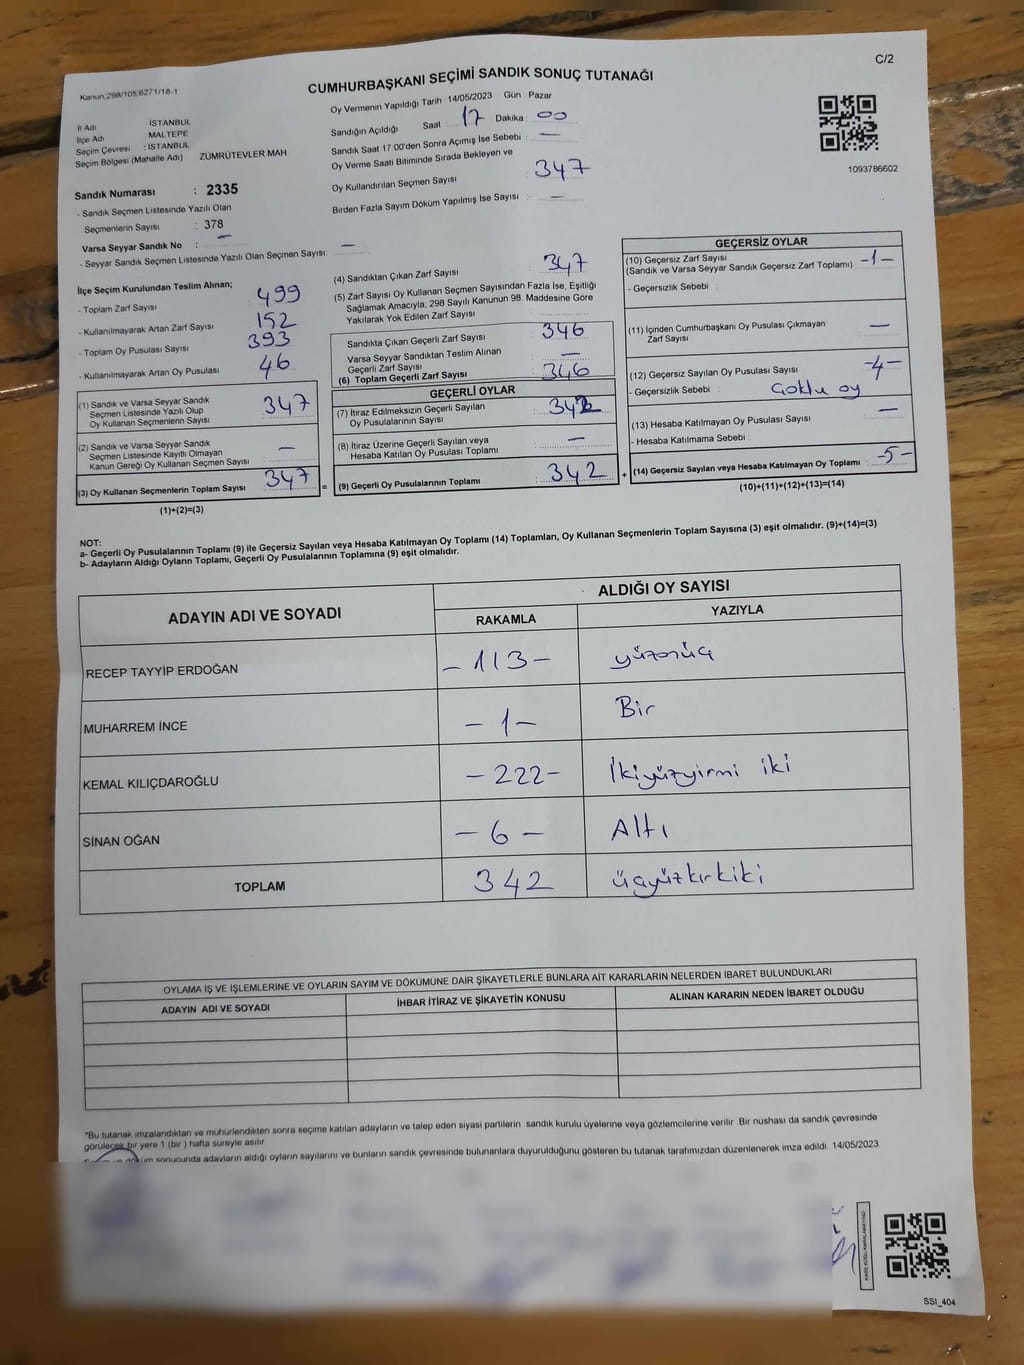 C/2
Kanun:298/105;6271/18-1
CUMHURBAŞKANI SEÇİMİ SANDIK SONUÇ TUTANAĞI
Oy Vermenin Yapıldığı Tarih :14/05/2023 Gün : Pazar
İl Adı İSTANBUL
İlçe Adı MALTEPE
Seçim Çevresi : İSTANBUL
Seçim Bölgesi (Mahalle Adı) ZÜMRÜTEVLER MAH
Sandığın Açıldığı Saat : 17 Dakika : 00
Sandık Saat 17:00'den Sonra Açımış İse Sebebi : —
Oy Verme Saati Bitiminde Sırada Bekleyen ve
Oy Kullandırılan Seçmen Sayısı : 347
Birden Fazla Sayım Döküm Yapılmış İse Sayısı : —
1093786602
Sandık Numarası : 2335
- Sandık Seçmen Listesinde Yazılı Olan
Seçmenlerin Sayısı : 378
Varsa Seyyar Sandık No : —
- Seyyar Sandık Seçmen Listesinde Yazılı Olan Seçmen Sayısı: —
İlçe Seçim Kurulundan Teslim Alınan;
- Toplam Zarf Sayısı 499
- Kullanılmayarak Artan Zarf Sayısı 152
- Toplam Oy Pusulası Sayısı 393
- Kullanılmayarak Artan Oy Pusulası 46
(1) Sandık ve Varsa Seyyar Sandık
Seçmen Listesinde Yazılı Olup
Oy Kullanan Seçmenlerin Sayısı : 347
(2) Sandık ve Varsa Seyyar Sandık
Seçmen Listesinde Kayıtlı Olmayan
Kanun Gereği Oy Kullanan Seçmen Sayısı : —
(3) Oy Kullanan Seçmenlerin Toplam Sayısı : 347
(1)+(2)=(3)
=
(4) Sandıktan Çıkan Zarf Sayısı : 347
(5) Zarf Sayısı Oy Kullanan Seçmen Sayısından Fazla İse, Eşitliği
Sağlamak Amacıyla, 298 Sayılı Kanunun 98. Maddesine Göre
Yakılarak Yok Edilen Zarf Sayısı :
Sandıkta Çıkan Geçerli Zarf Sayısı : 346
Varsa Seyyar Sandıktan Teslim Alınan
Geçerli Zarf Sayısı : —
(6) Toplam Geçerli Zarf Sayısı : 346
GEÇERLİ OYLAR
(7) İtiraz Edilmeksizin Geçerli Sayılan
Oy Pusulalarının Sayısı : 342
(8) İtiraz Üzerine Geçerli Sayılan veya
Hesaba Katılan Oy Pusulası Toplamı : —
(9) Geçerli Oy Pusulalarının Toplamı : 342
+
GEÇERSİZ OYLAR
(10) Geçersiz Zarf Sayısı
(Sandık ve Varsa Seyyar Sandık Geçersiz Zarf Toplamı) : -1-
- Geçersizlik Sebebi :
(11) İçinden Cumhurbaşkanı Oy Pusulası Çıkmayan
Zarf Sayısı : —
(12) Geçersiz Sayılan Oy Pusulası Sayısı : -4-
- Geçersizlik Sebebi : Çoklu oy
(13) Hesaba Katılmayan Oy Pusulası Sayısı : —
- Hesaba Katılmama Sebebi :
(14) Geçersiz Sayılan veya Hesaba Katılmayan Oy Toplamı : -5-
(10)+(11)+(12)+(13)=(14)
NOT:
a- Geçerli Oy Pusulalarının Toplamı (9) ile Geçersiz Sayılan veya Hesaba Katılmayan Oy Toplamı (14) Toplamları, Oy Kullanan Seçmenlerin Toplam Sayısına (3) eşit olmalıdır. (9)+(14)=(3)
b- Adayların Aldığı Oyların Toplamı, Geçerli Oy Pusulalarının Toplamına (9) eşit olmalıdır.
ADAYIN ADI VE SOYADI
ALDIĞI OY SAYISI
RAKAMLA YAZIYLA
RECEP TAYYİP ERDOĞAN -113- yüzonüç
MUHARREM İNCE -1- Bir
KEMAL KILIÇDAROĞLU -222- İkiyüzyirmi iki
SİNAN OĞAN -6- Altı
TOPLAM 342 üçyüzkırkiki
OYLAMA İŞ VE İŞLEMLERİNE VE OYLARIN SAYIM VE DÖKÜMÜNE DAİR ŞİKAYETLERLE BUNLARA AİT KARARLARIN NELERDEN İBARET BULUNDUKLARI
ADAYIN ADI VE SOYADI İHBAR İTİRAZ VE ŞİKAYETİN KONUSU ALINAN KARARIN NEDEN İBARET OLDUĞU
*Bu tutanak imzalandıktan ve mühürlendikten sonra seçime katılan adayların ve talep eden siyasi partilerin sandık kurulu üyelerine veya gözlemcilerine verilir. Bir nüshası da sandık çevresinde
görülecek bir yere 1 (bir ) hafta süreyle asılır.
döküm sonucunda adayların aldığı oyların sayılarını ve bunların sandık çevresinde bulunanlara duyurulduğunu gösteren bu tutanak tarafımızdan düzenlenerek imza edildi. 14/05/2023
SSI_404